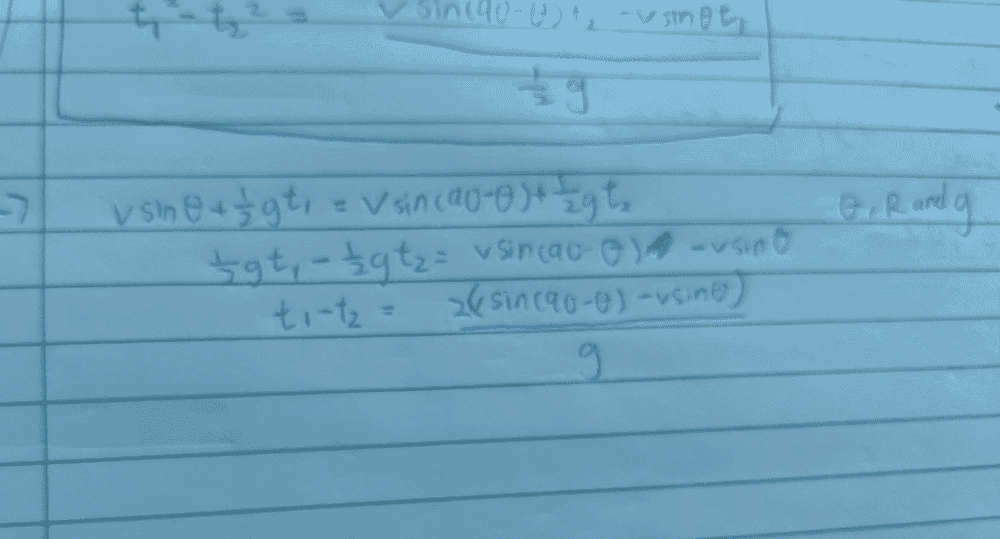 t₁² - t₂² = v sin(90-θ)t₂ - v sinθ t₁
½ g
→ v sin θ + ½gt₁ = v sin(90-θ) + ½gt₂ θ, R and g
½gt₁ - ½gt₂ = v sin(90-θ) - v sin θ
t₁ - t₂ = 2(v sin(90-θ) - v sin θ)
g